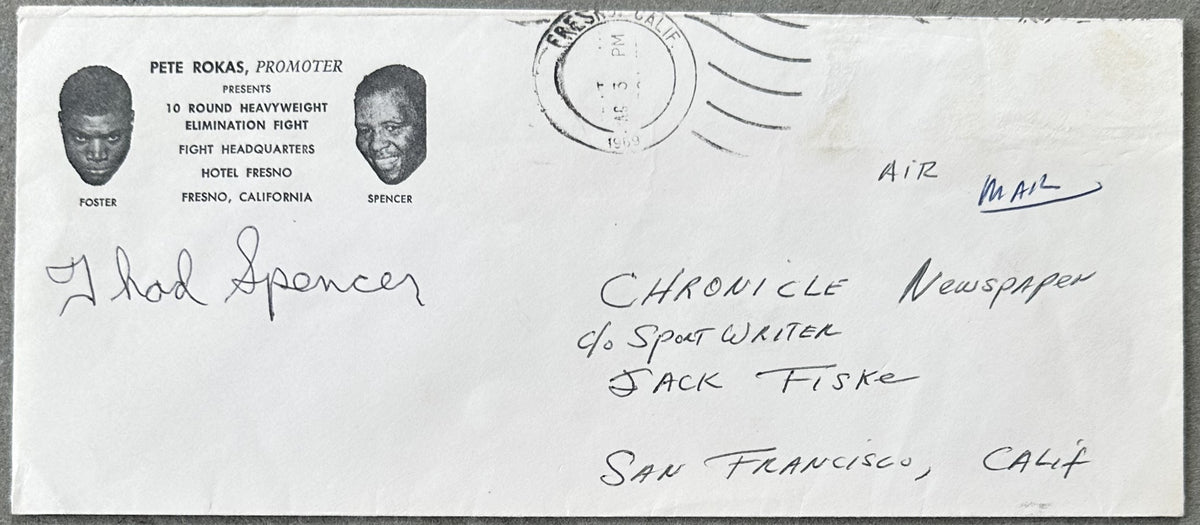 PETE ROKAS, PROMOTER
PRESENTS
10 ROUND HEAVYWEIGHT
ELIMINATION FIGHT
FIGHT HEADQUARTERS
HOTEL FRESNO
FRESNO, CALIFORNIA
FOSTER
SPENCER
Thad Spencer
FRESNO, CALIF.
3 PM
1969
AIR MAIL
CHRONICLE Newspaper
c/o Sport WRITER
JACK FISKe
SAN FRANCISCO, CALif